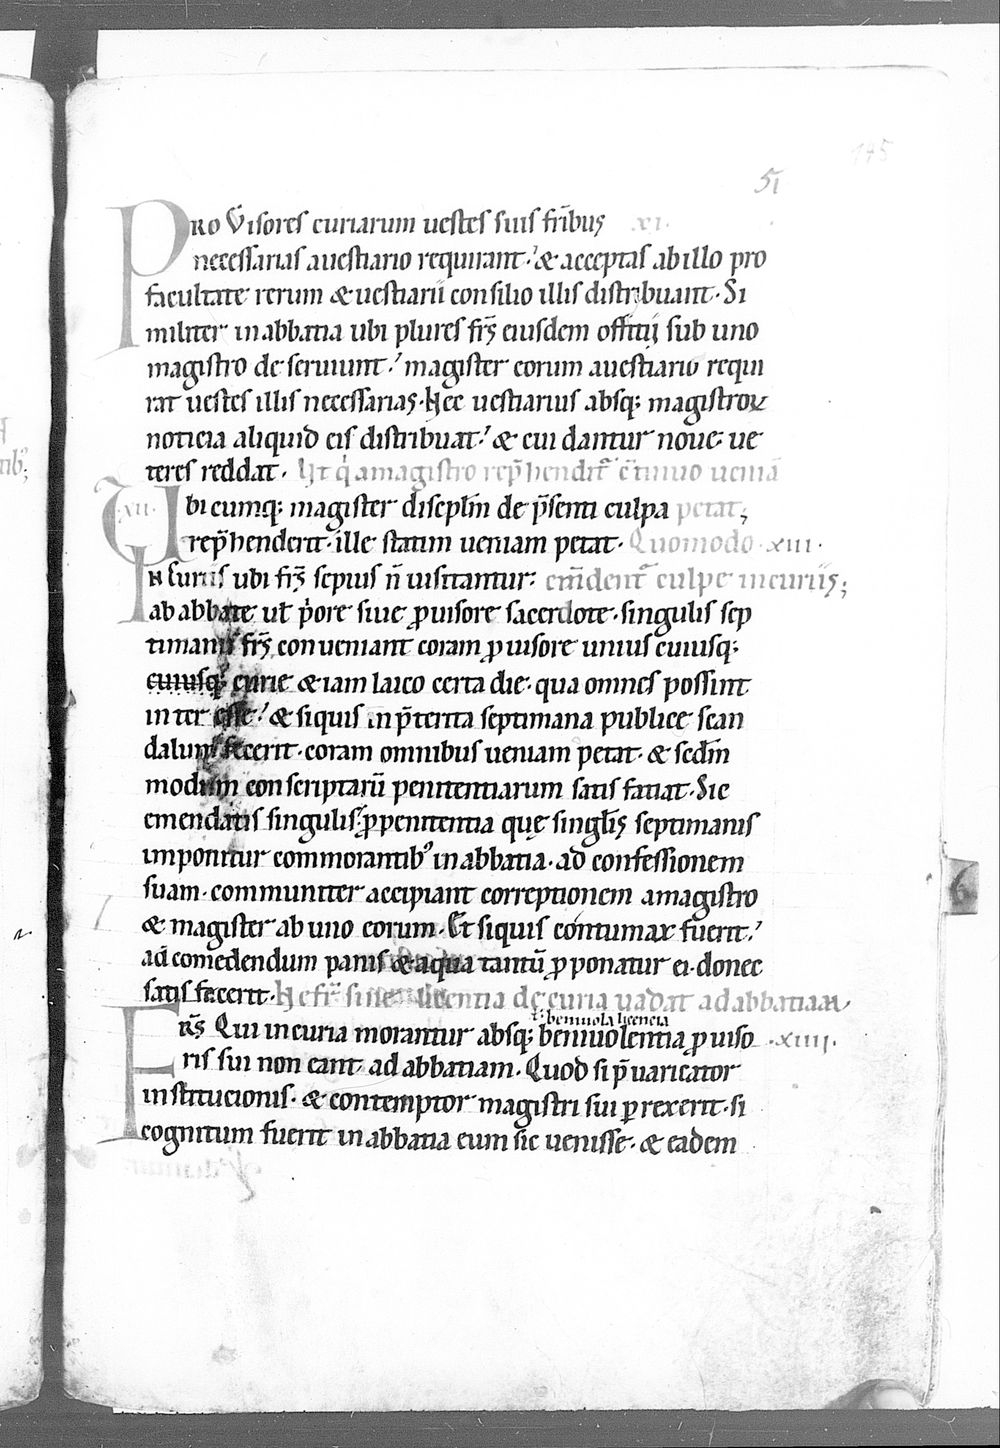 145
51
PRO Ṽisores curiarum uestes suis fr̄ibus xi.
necessarias auestiario requirant·̓ & acceptas ab illo pro
facultate rerum & uestiarii consilio illis distribuant· Si
militer in abbatia ubi plures fr̄s eiusdem offitii sub uno
magistro deseruiunt·̓ magister eorum auestiario requi
rat uestes illis necessarias· Nec uestiarius absq; magistroꝝ
noticia aliquid eis distribuat·̓ & cui dantur noue· ue
teres reddat· Ut q̇ amagistro rep̄hendit᷑ c̄tinuo ueniā
·xii· Ubicumq; magister disciplīn de p̄senti culpa petat;
rep̄henderit· ille statim ueniam petat· Quomodo ·xiii·
IN Curiis ubi fr̄s sepius n̄ uisitantur· em̄dent᷑ culpe in curiis;
ab abbate ul̄ p̄ore siue ꝓuisore sacerdote· singulis sep
timanis fr̄s conueniant coram ꝓuisore unius cuiusq;
cuiusq; curie & iam laico certa die· qua omnes possint
inter esse·̓ & siquis in p̄terita septimana publice scan
dalum fecerit· coram omnibus ueniam petat· & sc̄dm
modum conscriptarū penitentiarum satis faciat· Sic
emendatis singulis·̓ ꝓ penitentia quę singl̄is septimanis
imponitur commorantib᷒ in abbatia· ad confessionem
suam· communiter accipiant correptionem amagistro
& magister ab uno eorum· Et siquis contumax fuerit·̓
ad comedendum panis & aqua tantū ꝓponatur ei· donec
satis fecerit· Ne fr̄ sine licentia de curia uadat ad abbatiam
ł beniuola licencia
FR̄S Qui in curia morantur absq; beniuolentia ꝓuiso ·xiiii·
ris sui non eant· ad abbatiam· Quod si p̄uaricator
institucionis· & contemptor magistri sui ꝑrexerit· si
cognitum fuerit in abbatia eum sic uenisse· & eadem